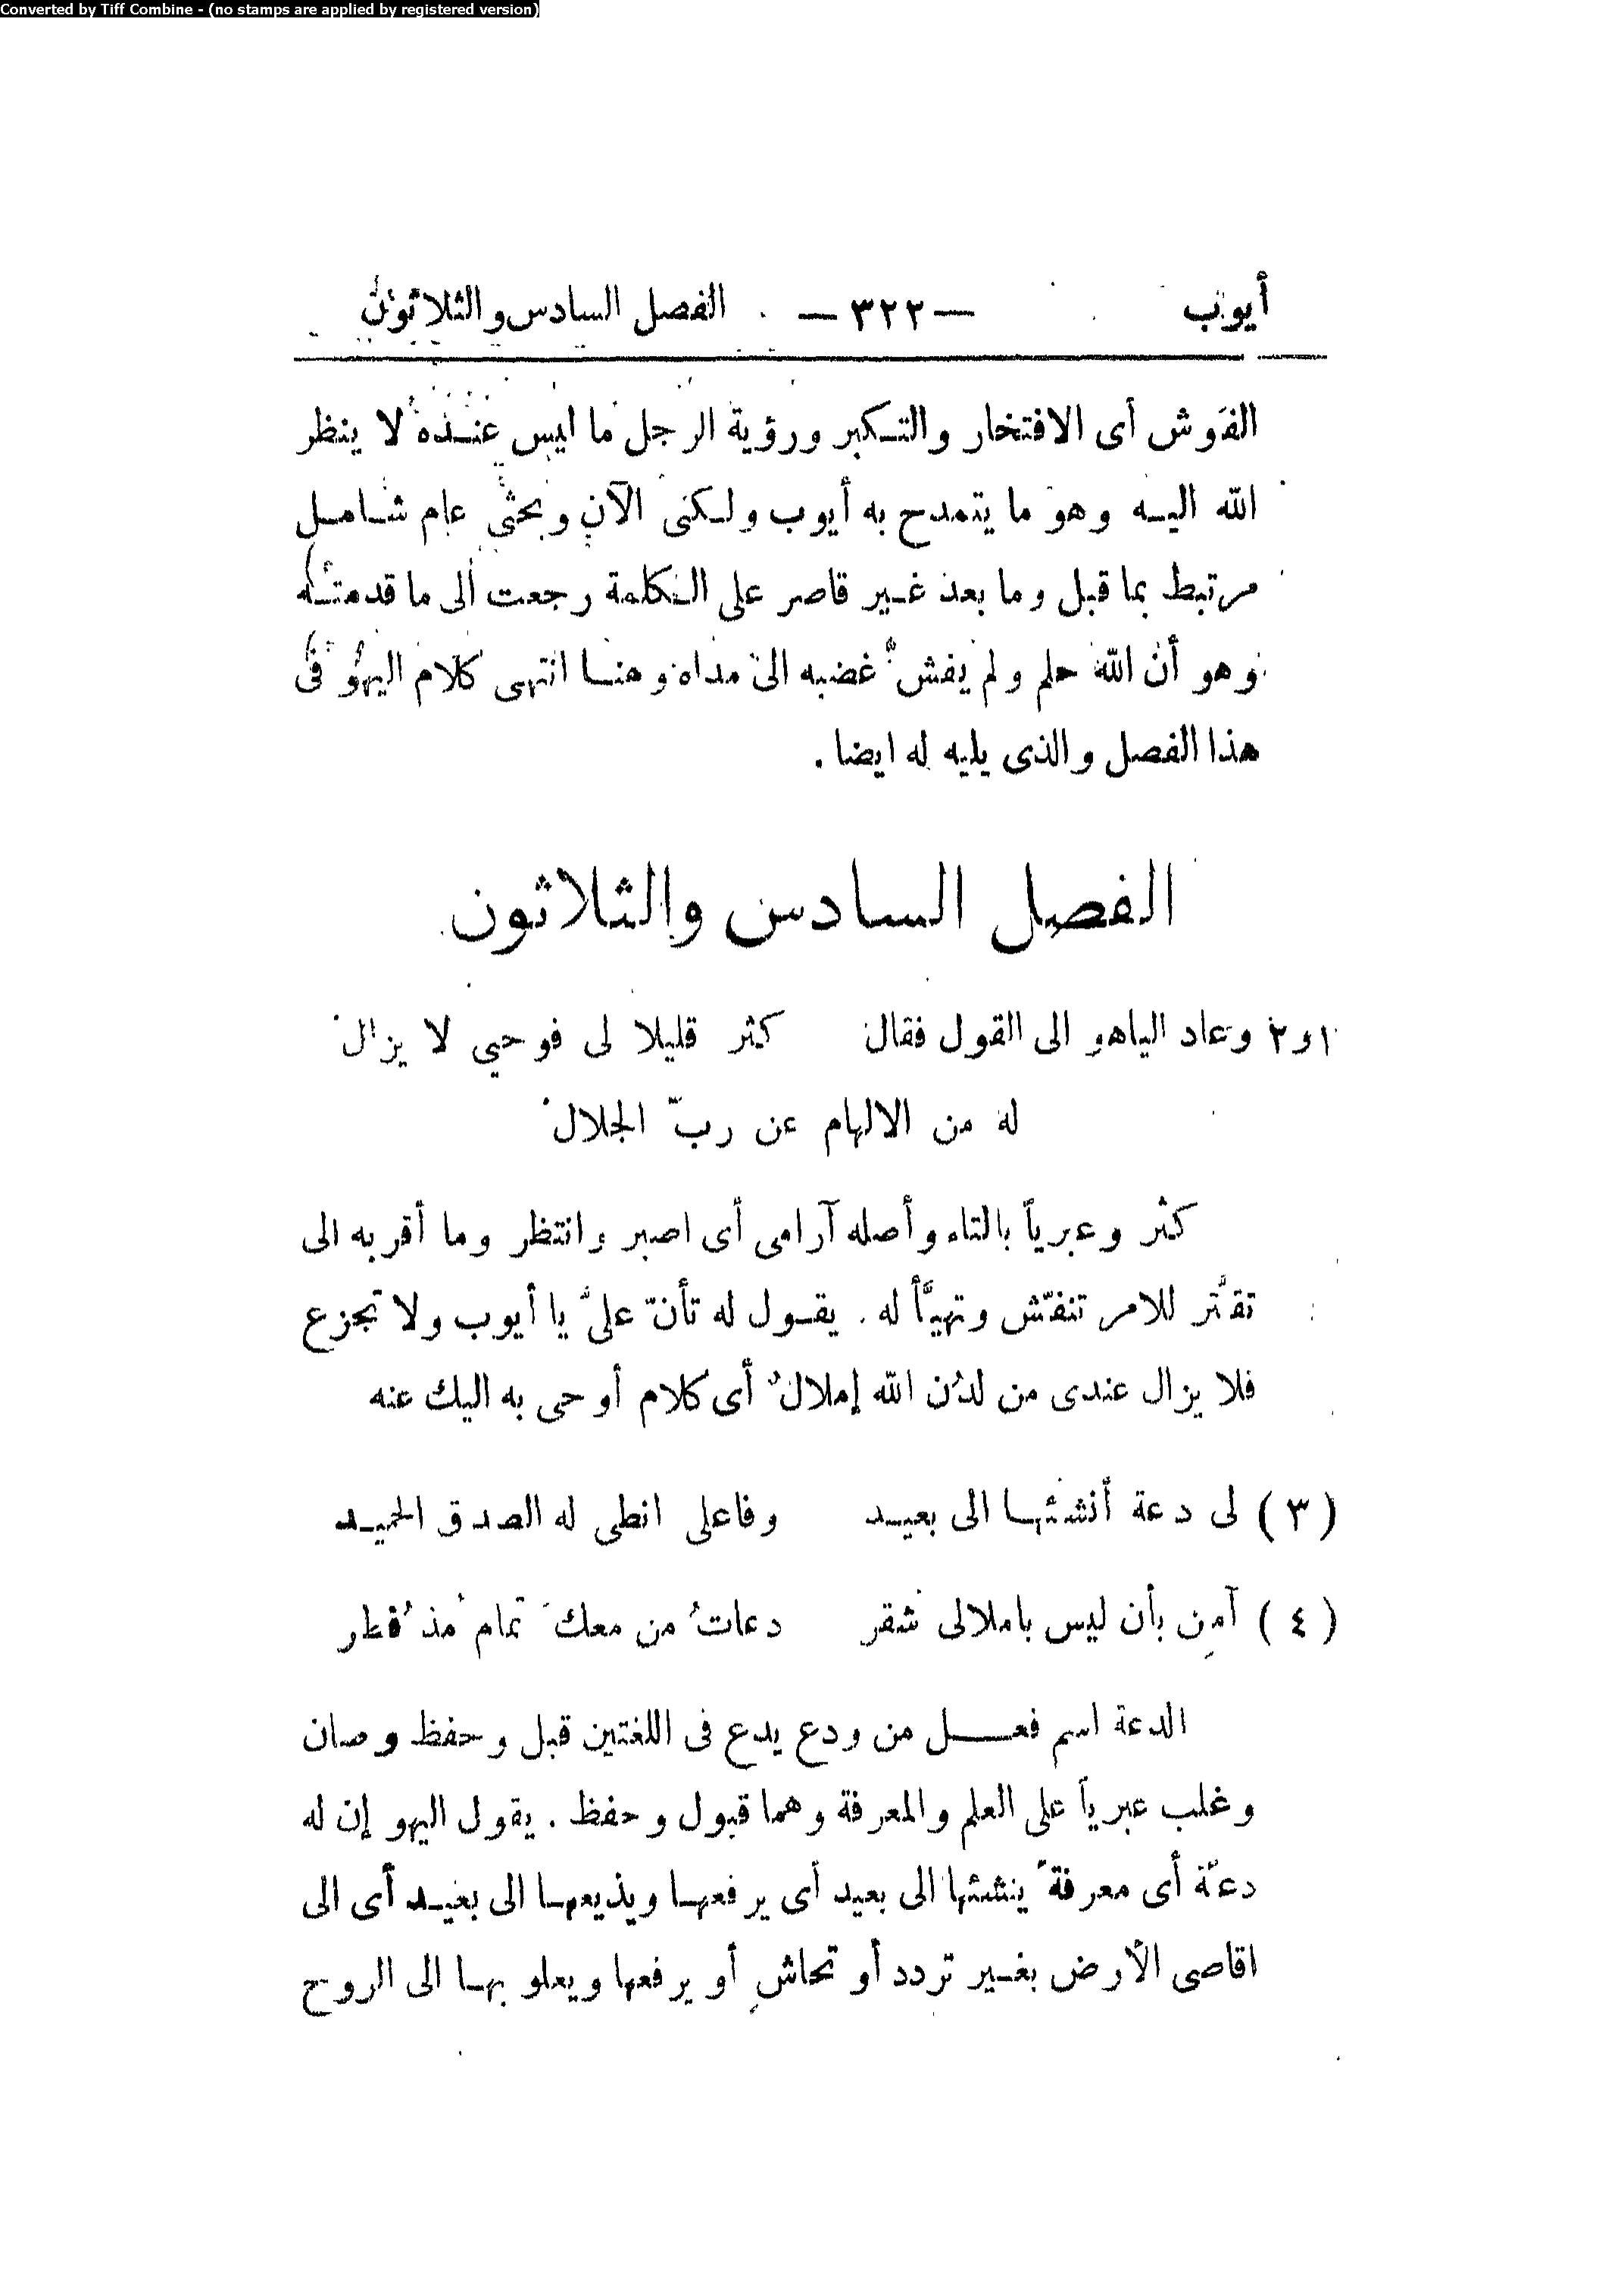 Converted by Tiff Combine - (no stamps are applied by registered version)
أيوب — ٣٢٢ — الفصل السادس والثلاثون
الفوش أى الافتخار والتكبر ورؤية الرجل ما ليس عنده لا ينظر
الله اليه وهو ما يتمدح به أيوب ولكنى الآن وبحثى عام شامل
مرتبط بما قبل وما بعد غير قاصر على الكلمة رجعت الى ما قدمته
وهو أن الله حلم ولم يفشّ غضبه الى مداه وهنا انتهى كلام اليهو فى
هذا الفصل والذى يليه له ايضا .
الفصل السادس والثلاثون
١و٢ وعاد الياهو الى القول فقال كثر قليلا لى فوحيي لا يزال
له من الالهام عن ربّ الجلال
كثر وعبرياً بالتاء وأصله آرامى أى اصبر وانتظر وما أقربه الى
تقتّر للامر تنفّش وتهيّأ له . يقول له تأنّ علىّ يا أيوب ولا تجزع
فلا يزال عندى من لدُن الله إملالٌ أى كلام أوحى به اليك عنه
(٣) لى دعة أنشئها الى بعيد وفاعلى انطى له الصدق الحميد
(٤) آمن بأن ليس باملالى شقر دعاتُ من معك تمام مُذ فُطر
الدعة اسم فعل من ودع يدع فى اللغتين قبل وحفظ وصان
وغلب عبرياً على العلم والمعرفة وهما قبول وحفظ . يقول اليهو إن له
دعة أى معرفة ينشئها الى بعيد أى يرفعها ويذيعها الى بعيد أى الى
اقاصى الأرض بغير تردد أو تحاشٍ أو يرفعها ويعلو بها الى الروح